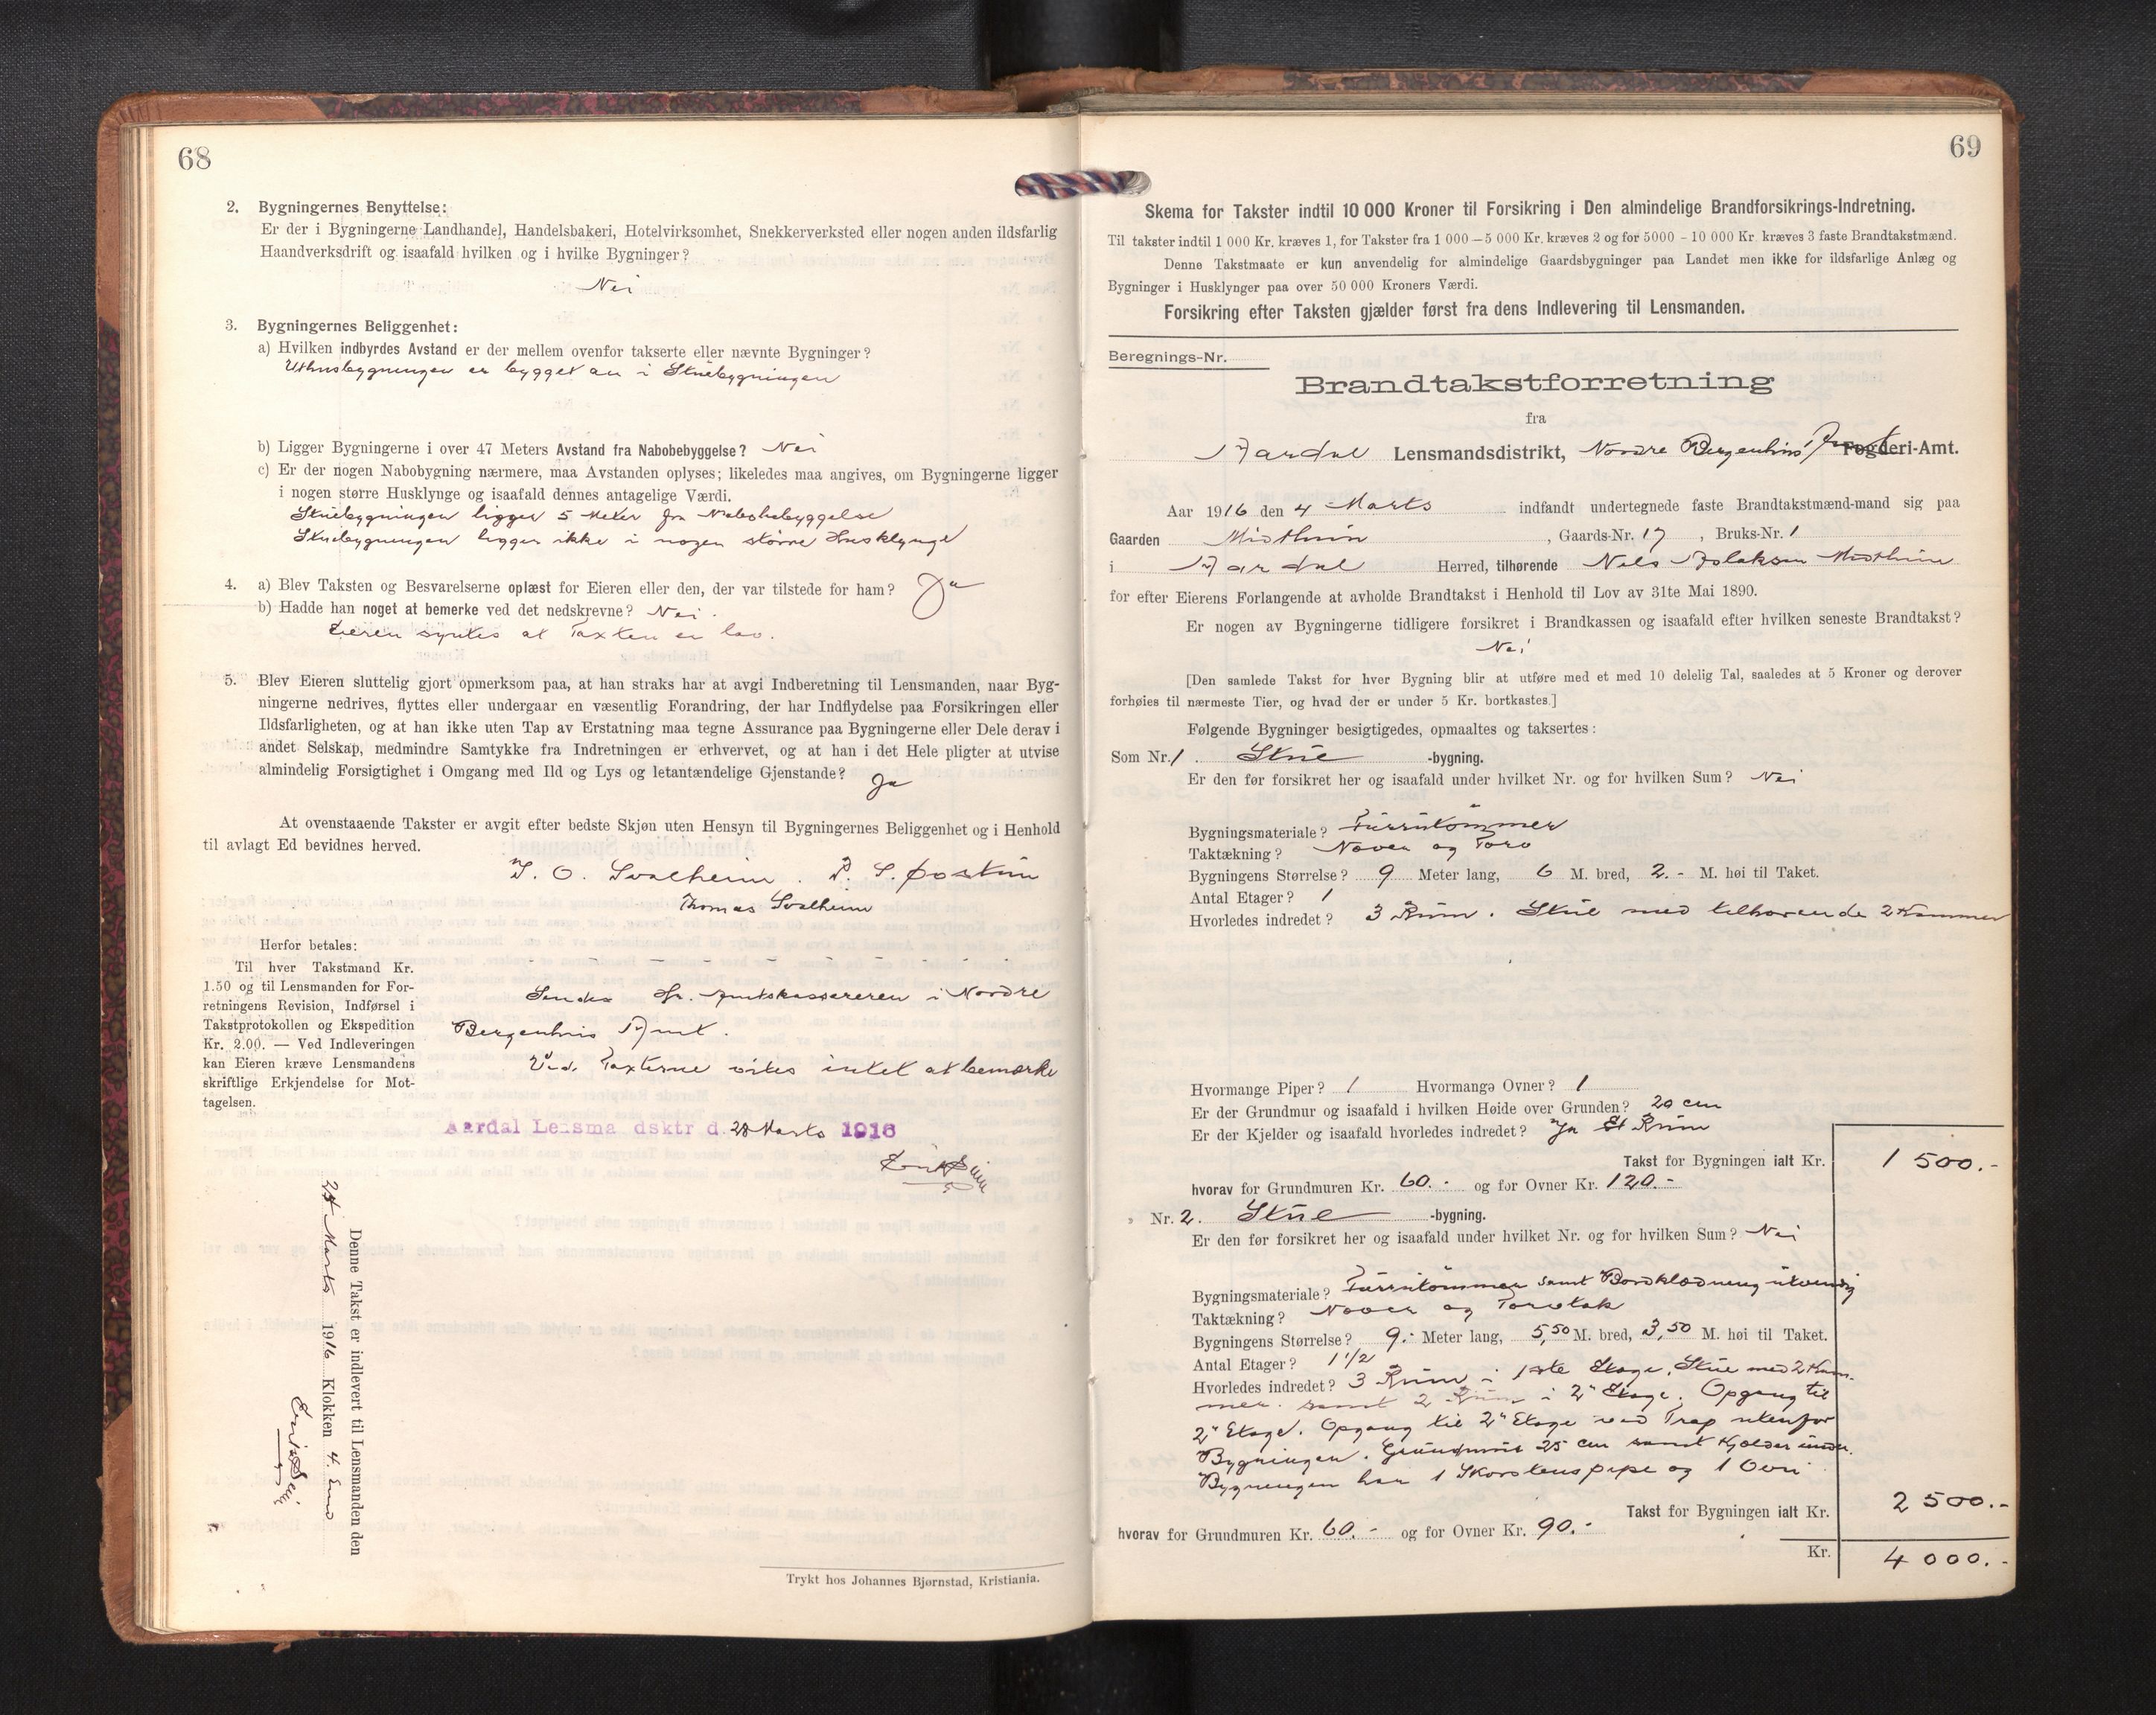 68
2. Bygningernes Benyttelse:
Er der i Bygningerne Landhandel, Handelsbakeri, Hotelvirksomhet, Snekkerverksted eller nogen anden ildsfarlig
Haandverksdrift og isaafald hvilken og i hvilke Bygninger?
Nei
3. Bygningernes Beliggenhet:
a) Hvilken indbyrdes Avstand er der mellem ovenfor takserte eller nævnte Bygninger?
Uthusbygningen er bygget an i Stuebygningen
b) Ligger Bygningerne i over 47 Meters Avstand fra Nabobebyggelse? Nei
c) Er der nogen Nabobygning nærmere, maa Avstanden oplyses; likeledes maa angives, om Bygningerne ligger
i nogen større Husklynge og isaafald dennes antagelige Værdi.
Stuebygningen ligger 5 Meter fra Nabobebyggelse
Stuebygningen ligger ikke i nogen større Husklynge
4. a) Blev Taksten og Besvarelserne oplæst for Eieren eller den, der var tilstede for ham? Ja
b) Hadde han noget at bemerke ved det nedskrevne? Nei.
Eieren syntes at Taxten er lav.
5. Blev Eieren sluttelig gjort opmerksom paa, at han straks har at avgi Indberetning til Lensmanden, naar Byg-
ningerne nedrives, flyttes eller undergaar en væsentlig Forandring, der har Indflydelse paa Forsikringen eller
Ildsfarligheten, og at han ikke uten Tap av Erstatning maa tegne Assurance paa Bygningerne eller Dele derav i
andet Selskap, medmindre Samtykke fra Indretningen er erhvervet, og at han i det Hele pligter at utvise
almindelig Forsigtighet i Omgang med Ild og Lys og letantændelige Gjenstande? Ja
At ovenstaaende Takster er avgit efter bedste Skjøn uten Hensyn til Bygningernes Beliggenhet og i Henhold
til avlagt Ed bevidnes herved.
O. Svalheim. S.
Thomas Svalheim
Herfor betales:
Til hver Takstmand Kr.
1.50 og til Lensmanden for For-
retningens Revision, Indførsel i
Takstprotokollen og Ekspedition
Kr. 2.00. — Ved Indleveringen
kan Eieren kræve Lensmandens
skriftlige Erkjendelse for Mot-
tagelsen.
Sendes Hr. Amtskassereren i Nordre
Bergenhus Amt.
Ved Taxterne vites intet at bemærke
Aardal Lensma dsktr d. 28 Marts 1916
Denne Takst er indlevert til Lensmanden den
Marts 1916 Klokken 4. Emd
Trykt hos Johannes Bjørnstad, Kristiania.
69
Skema for Takster indtil 10 000 Kroner til Forsikring i Den almindelige Brandforsikrings-Indretning.
Til takster indtil 1 000 Kr. kræves 1, for Takster fra 1 000 — 5 000 Kr. kræves 2 og for 5000 - 10 000 Kr. kræves 3 faste Brandtakstmænd.
Denne Takstmaate er kun anvendelig for almindelige Gaardsbygninger paa Landet men ikke for ildsfarlige Anlæg og
Bygninger i Husklynger paa over 50 000 Kroners Værdi.
Forsikring efter Taksten gjælder først fra dens Indlevering til Lensmanden.
Beregnings-Nr.
Brandtakstforretning
fra
Aardal Lensmandsdistrikt, Nordre Bergenhus Amt Fogderi-Amt.
Aar 1916 den 4 Marts indfandt undertegnede faste Brandtakstmænd-mand sig paa
Gaarden Midthun, Gaards-Nr. 17, Bruks-Nr. 1
i Aardal Herred, tilhørende Nels Aslaksen Midthun
for efter Eierens Forlangende at avholde Brandtakst i Henhold til Lov av 31te Mai 1890.
Er nogen av Bygningerne tidligere forsikret i Brandkassen og isaafald efter hvilken seneste Brandtakst?
Nei
[Den samlede Takst for hver Bygning blir at utføre med et med 10 delelig Tal, saaledes at 5 Kroner og derover
forhøies til nærmeste Tier, og hvad der er under 5 Kr. bortkastes.]
Følgende Bygninger besigtigedes, opmaaltes og taksertes:
Som Nr. 1. Stue -bygning.
Er den før forsikret her og isaafald under hvilket Nr. og for hvilken Sum? Nei
Bygningsmateriale? Furutømmer
Taktækning? Næver og Torv
Bygningens Størrelse? 9 Meter lang, 6 M. bred, 2.- M. høi til Taket.
Antal Etager? 1
Hvorledes indredet? 3 Rum. Stue med tilhørende 2 Kammer
Hvormange Piper? 1 Hvormange Ovner? 1
Er der Grundmur og isaafald i hvilken Høide over Grunden? 20 cm
Er der Kjelder og isaafald hvorledes indredet? Ja Et Rum
Takst for Bygningen ialt Kr. 1 500.-
hvorav for Grundmuren Kr. 60.- og for Ovner Kr. 120.-
„ Nr. 2. Stue -bygning.
Er den før forsikret her og isaafald under hvilket Nr. og for hvilken Sum? Nei
Bygningsmateriale? Furutømmer samt Bordklædning utvendig
Taktækning? Næver og Torvtak
Bygningens Størrelse? 9.- Meter lang, 5,50 M. bred, 3,50 M. høi til Taket.
Antal Etager? 1 1/2
Hvorledes indredet? 3 Rum i 1ste Etage, Stue med 2 Kam-
mer. samt 2 Rum i 2" Etage. Opgang til
2" Etage. Opgang til 2" Etage ved Trap utenfor
Bygningen. Grundmur 25 cm samt Kjelder under.
Bygningen har 1 Skorstenspipe og 1 Ovn
Takst for Bygningen ialt Kr. 2 500.-
hvorav for Grundmuren Kr. 60.- og for Ovner Kr. 90.-
Kr. 4 000.-